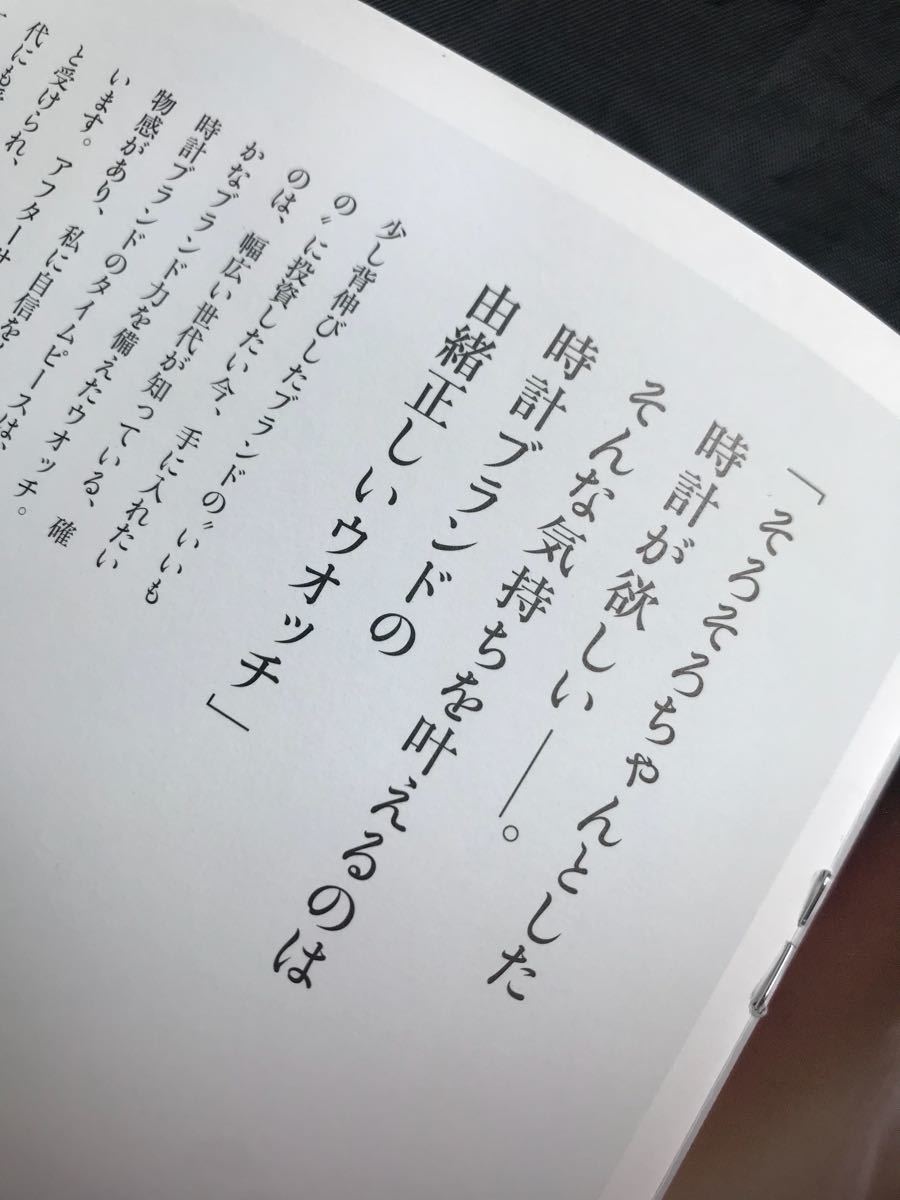 「そろそろちゃんとした
時計が欲しい――。
そんな気持ちを叶えるのは
時計ブランドの
由緒正しいウオッチ」
少し背伸びしたブランドの〝いいも
の〟に投資したい今、手に入れたい
のは、幅広い世代が知っている、確
かなブランド力を備えたウオッチ。
時計ブランドのタイムピースは、
物感があり、私に自信を
います。アフターサ
と受けられ、
代にも